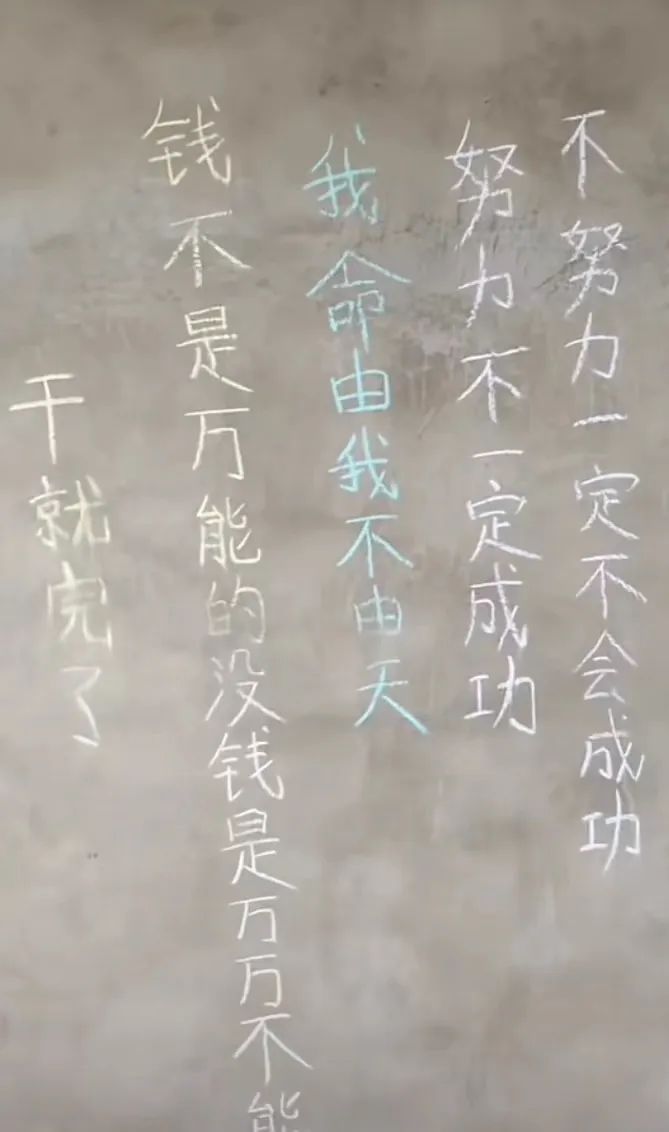 不努力一定不会成功
努力不一定成功
我命由我不由天
钱不是万能的没钱是万万不能
干就完了